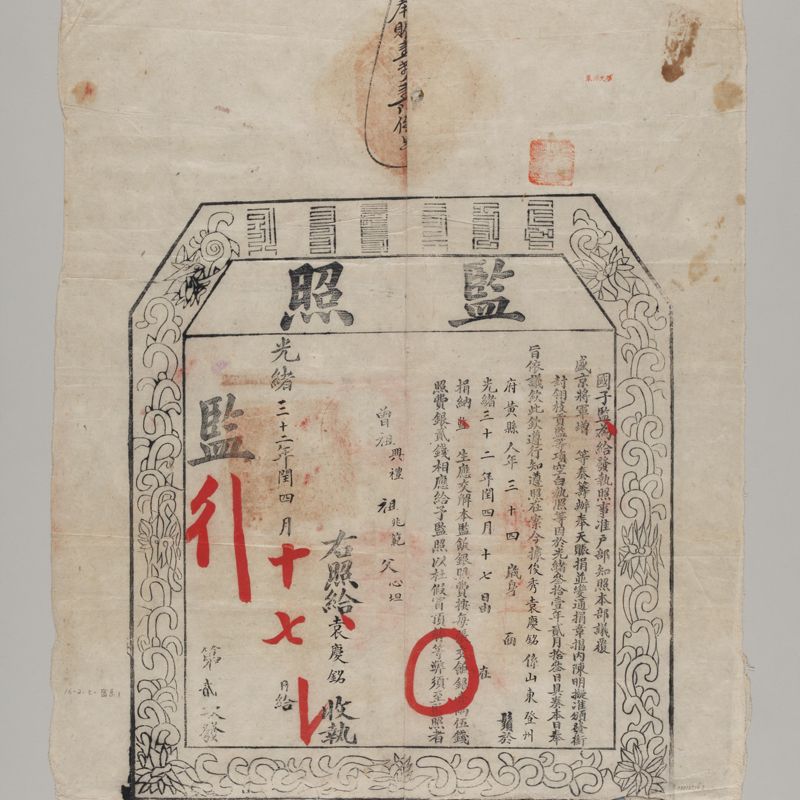 監照
國子監為給發執照事准戶部知照本部議覆
盛京將軍增 等奏籌辦奉天賑捐並變通捐章摺內陳明擬准頒發銜
封翎枝貢監等項空白執照等因於光緒叁拾壹年貳月拾叁日具奏本日奉
旨依議欽此欽遵行知遵照在案今據俊秀袁慶銘 係山東登州
府黃縣人年三十四歲身 面 鬚於
光緒三十二年閏四月十七日由 在
捐納監生應交解本監飯銀照費按每 交飯銀 兩伍錢
照費銀貳錢相應給予監照以杜假冒頂 等弊須至 照者
曾祖興禮 祖兆範 父心坦
右照給袁慶銘收執
光緒三十二年閏四月十七日給
監行
第貳次發